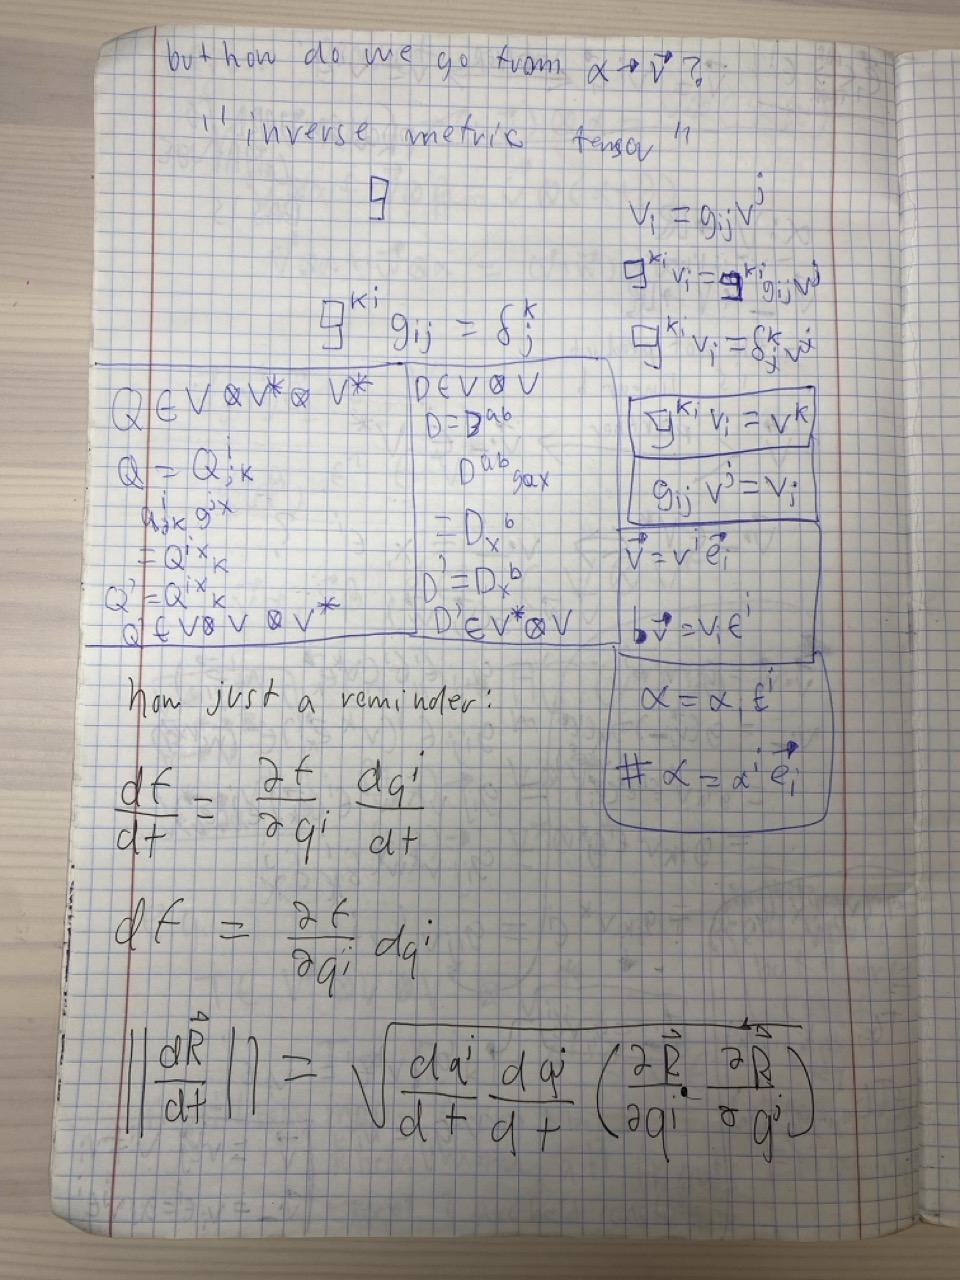 but how do we go from α → v⃗ ?
"inverse metric tensor"
𝔤
v_i = g_ij v^j
𝔤^ki v_i = 𝔤^ki g_ij v^j
𝔤^ki g_ij = δ^k_j
𝔤^ki v_i = δ^k_j v^j
𝔤^ki v_i = v^k
g_ij v^j = v_i
v⃗ = v^i e⃗_i
♭v⃗ = v_i ϵ^i
α = α_i ϵ^i
# α = α^i e⃗_i
Q ∈ V ⊗ V* ⊗ V*
Q = Q^i_jk
Q^i_jk g^jx
= Q^ix_k
Q' = Q^ix_k
Q' ∈ V ⊗ V ⊗ V*
D ∈ V ⊗ V
D = D^ab
D^ab g_ax
= D_x^b
D' = D_x^b
D' ∈ V* ⊗ V
now just a reminder:
df/dt = ∂f/∂q^i dq^i/dt
df = ∂f/∂q^i dq^i
||dR⃗/dt|| = √(dq^i/dt dq^j/dt (∂R⃗/∂q^i · ∂R⃗/∂q^j))